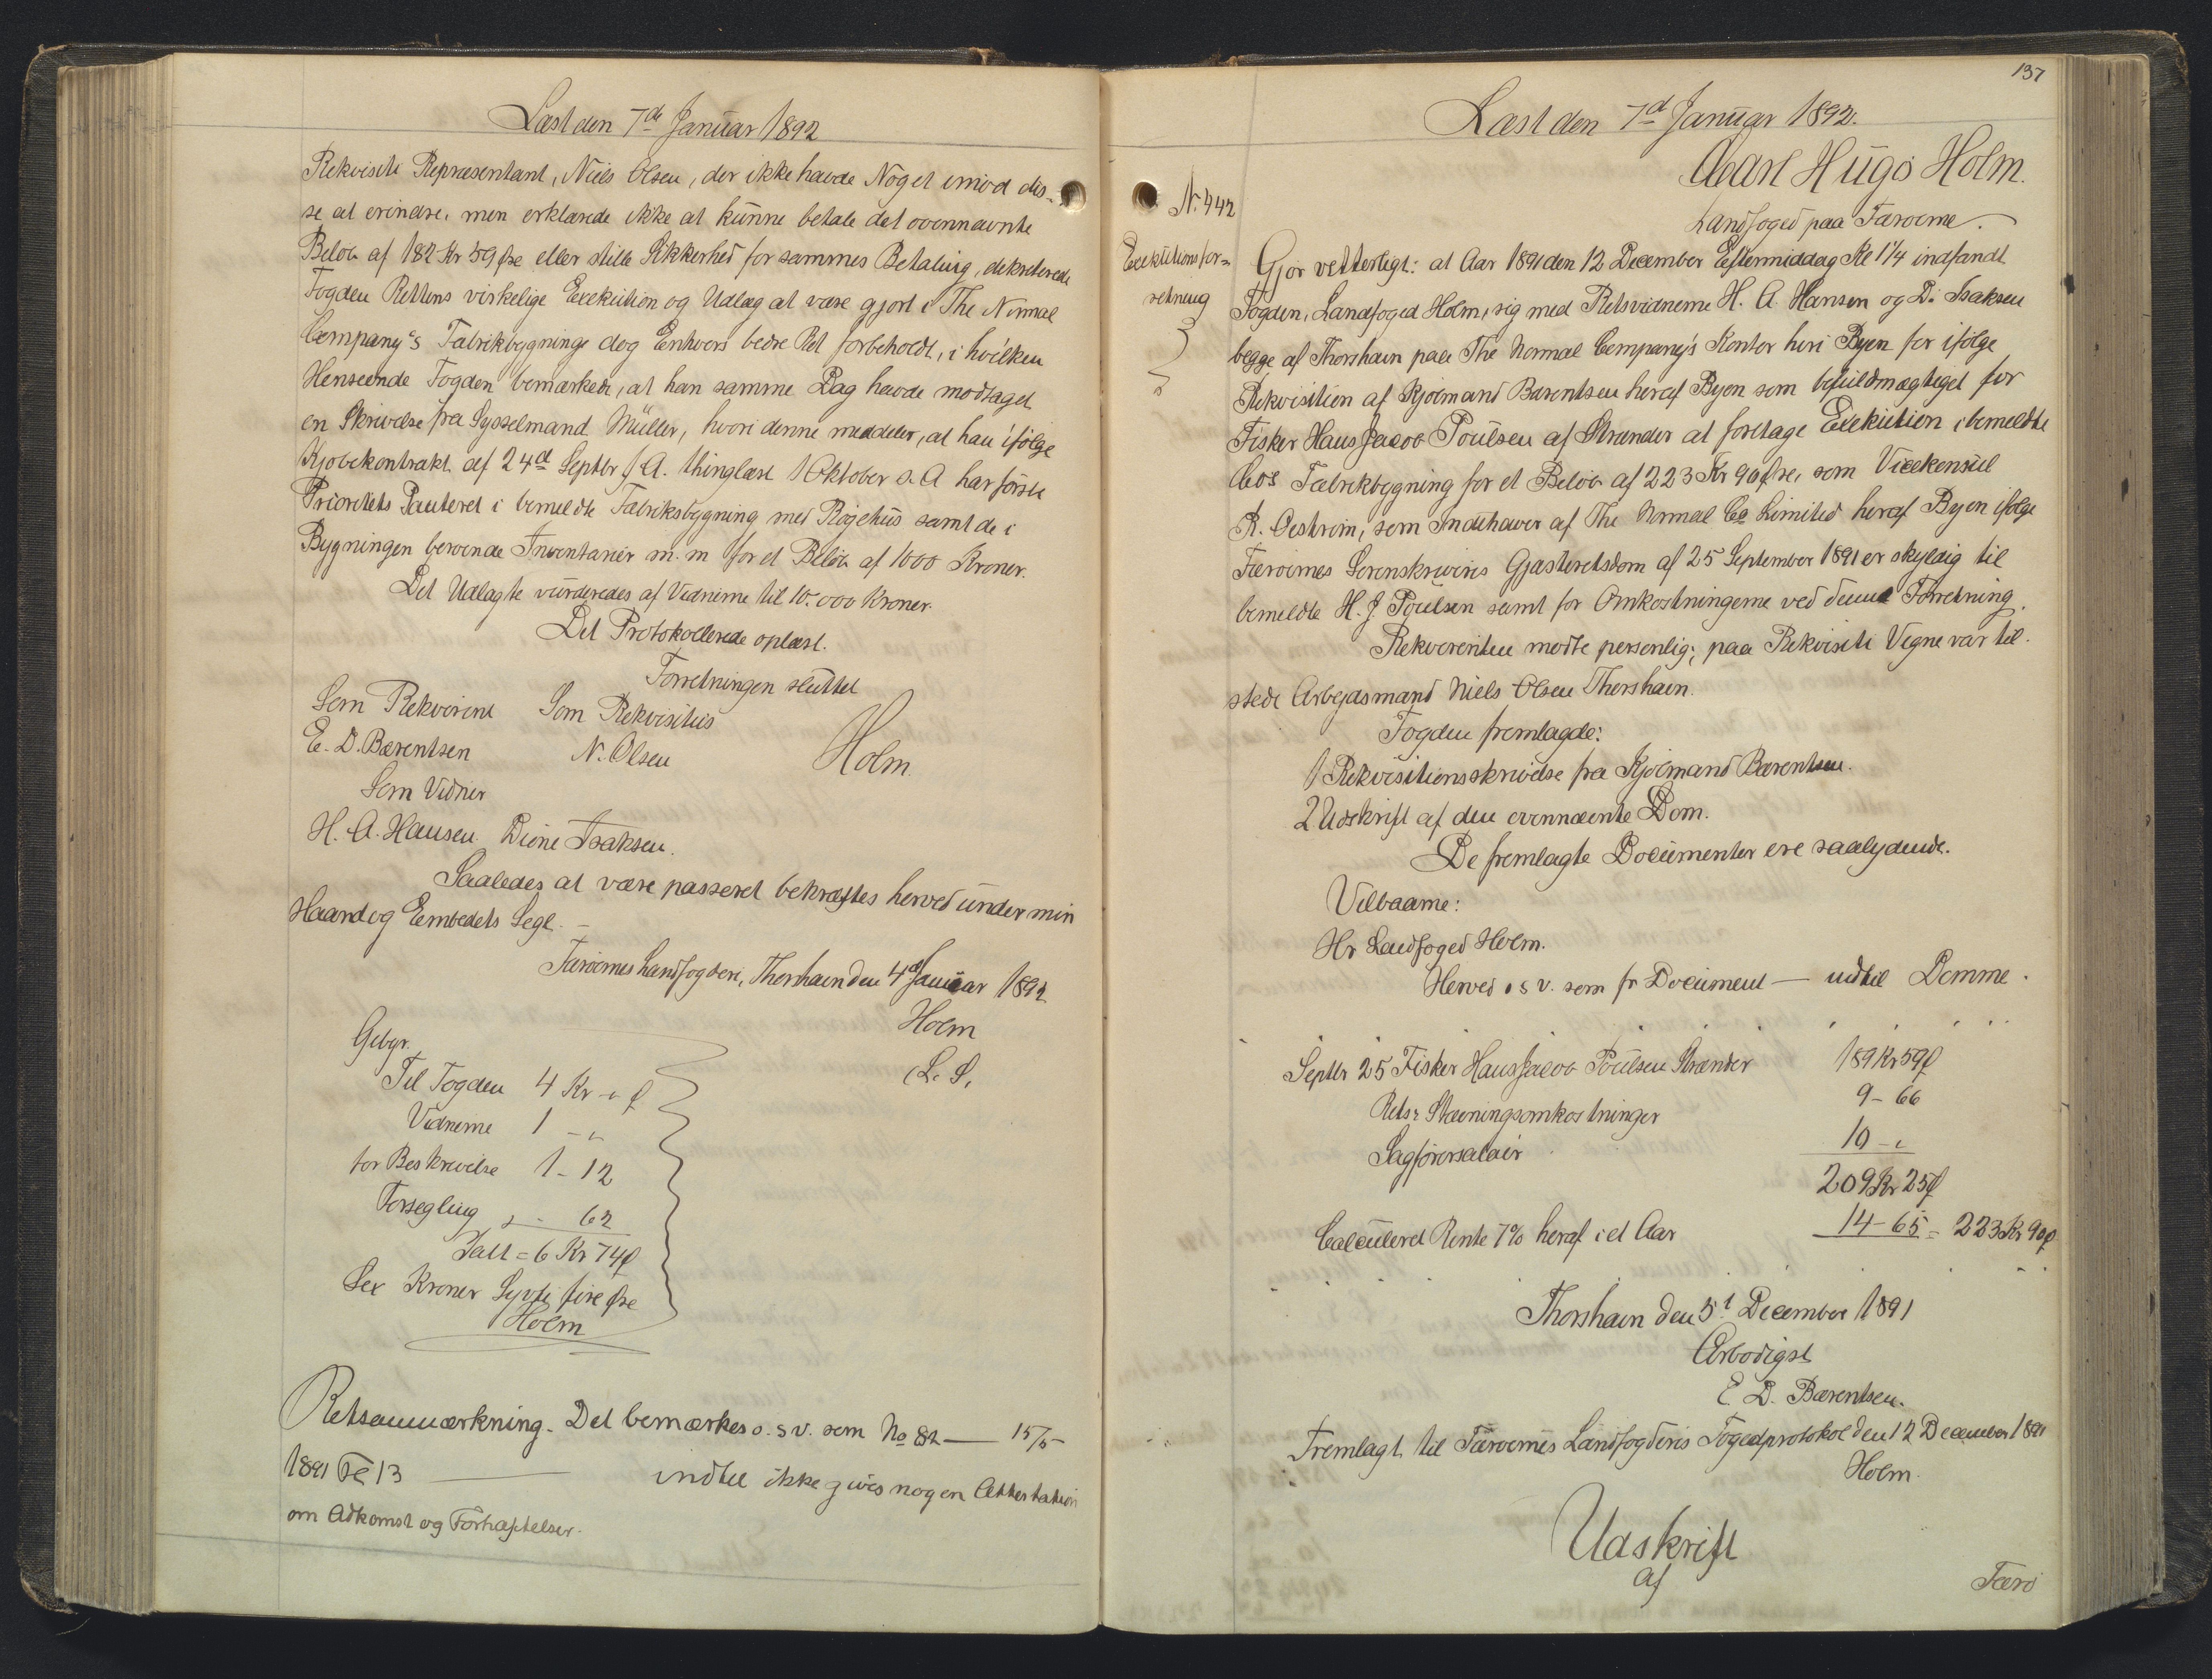 Læst den 7de Januar 1892
Rekvisiti Repræsentant, Niels Olsen, der ikke havde Noget imod dis-
se at erindre, men erklærede ikke at kunne betale det ovennævnte
Beløb af 182 Kr 59 Øre eller stille Sikkerhed for sammes Betaling, dekreterede
Fogden Rettens virkelige Exekution og Udlæg at være gjort i The Normal
Company's Fabrikbygninge dog Enhvers bedre Ret forbeholdt, i hvilken
Henseende Fogden bemærkede, at han samme Dag havde modtaget
en Skrivelse fra Sysselmand Müller, hvori denne meddeler, at han ifølge
Kjøbekontrakt af 24de Septbr f. A. thinglæst 1 Oktober s. A har første
Prioritets Panteret i bemeldte Fabriksbygning med Røgehus samt de i
Bygningen beroende Inventarier m. m for et Beløb af 1000 Kroner.
Det Udlagte vurderedes af Vidnerne til 10.000 Kroner.
Det Protokollerede oplæst.
Forretningen sluttet
Som Rekvirent Som Rekvisitus
E. D. Bærentsen N. Olsen Holm.
Som Vidner
H. A. Hansen. Dione Isaksen.
Saaledes at være passeret bekræftes herved under min
Haand og Eembedets Segl. –
Færøernes Landfogderi, Thorshavn den 4de Januar 1892
Holm
(L. S.
Gebyr.
Til Fogden 4 Kr - " ø
Vidnerne 1 - "
for Beskrivelse 1 - 12
Forsegling " - 62
Ialt = 6 Kr 74 ø
Sex Kroner Syvti fire Øre
Holm
Retsanmærkning. Det bemærkes o. s v. som No 82 — 15/5-
1891 13 — indtil ikke gives nogen Attestation
om Adkomst og Forhæftelser.
137
Læst den 7d Januar 1892.
Carl Hugo Holm.
Landfoged paa Færøerne.
N. 442
Exekutionsfor-
retning
Gjør vetterligt: at Aar 1891 den 12 December Eftermiddag Kl 1 1/4 indfandt
Fogden, Landfoged Holm, sig med Retsvidnerne H. A. Hansen og D. Isaksen
begge af Thorshavn paa The Normal Company's Kontor heri Byen for ifølge
Rekvisition af Kjøbmand Bærentsen heraf Byen som befuldmægtiget for
Fisker Hans Jacob Poulsen af Strænder at foretage Exekution i bemeldte
Co's Fabrikbygning for et Beløb af 223 Kr 90 Øre, som Vicekonsul
R. Oestrom, som Indehaver af The Normal Co Limited heraf Byen ifølge
Færøernes Sorenskriveris Gjæsteretsdom af 25 September 1891 er skyldig til
bemeldte H. J. Poulsen samt for Omkostningerne ved denne Forretning.
Rekvirenten mødte personlig; paa Rekvisiti Vegne var til-
stede Arbejdsmand Niels Olsen Thorshavn.
Fogden fremlagde:
1 Rekvisitionsskrivelse fra Kjøbmand Bærentsen.
2 Udskrift af den ovennævnte Dom.
De fremlagte Documenter ere saalydende.
Velbaarne:
Hr Landfoged Holm.
Herved o s v. som fr Document — indtil Domme.
Septbr 25 Fisker Hans Jacob Poulsen Strænder 189 Kr 59 ø
Rets: Stævningsomkostninger 9 - 66
Sagførersalair 10 - "
209 Kr 25 ø
Calculeret Rente 7% heraf i et Aar 14 - 65 = 223 Kr 90 ø
Thorshavn den 5t December 1891
Ærbødigst
E. D. Bærentsen.
Fremlagt til Færøernes Landfogderis Fogedprotokol den 12 December 1891
Holm.
Udskrift
af
Færø